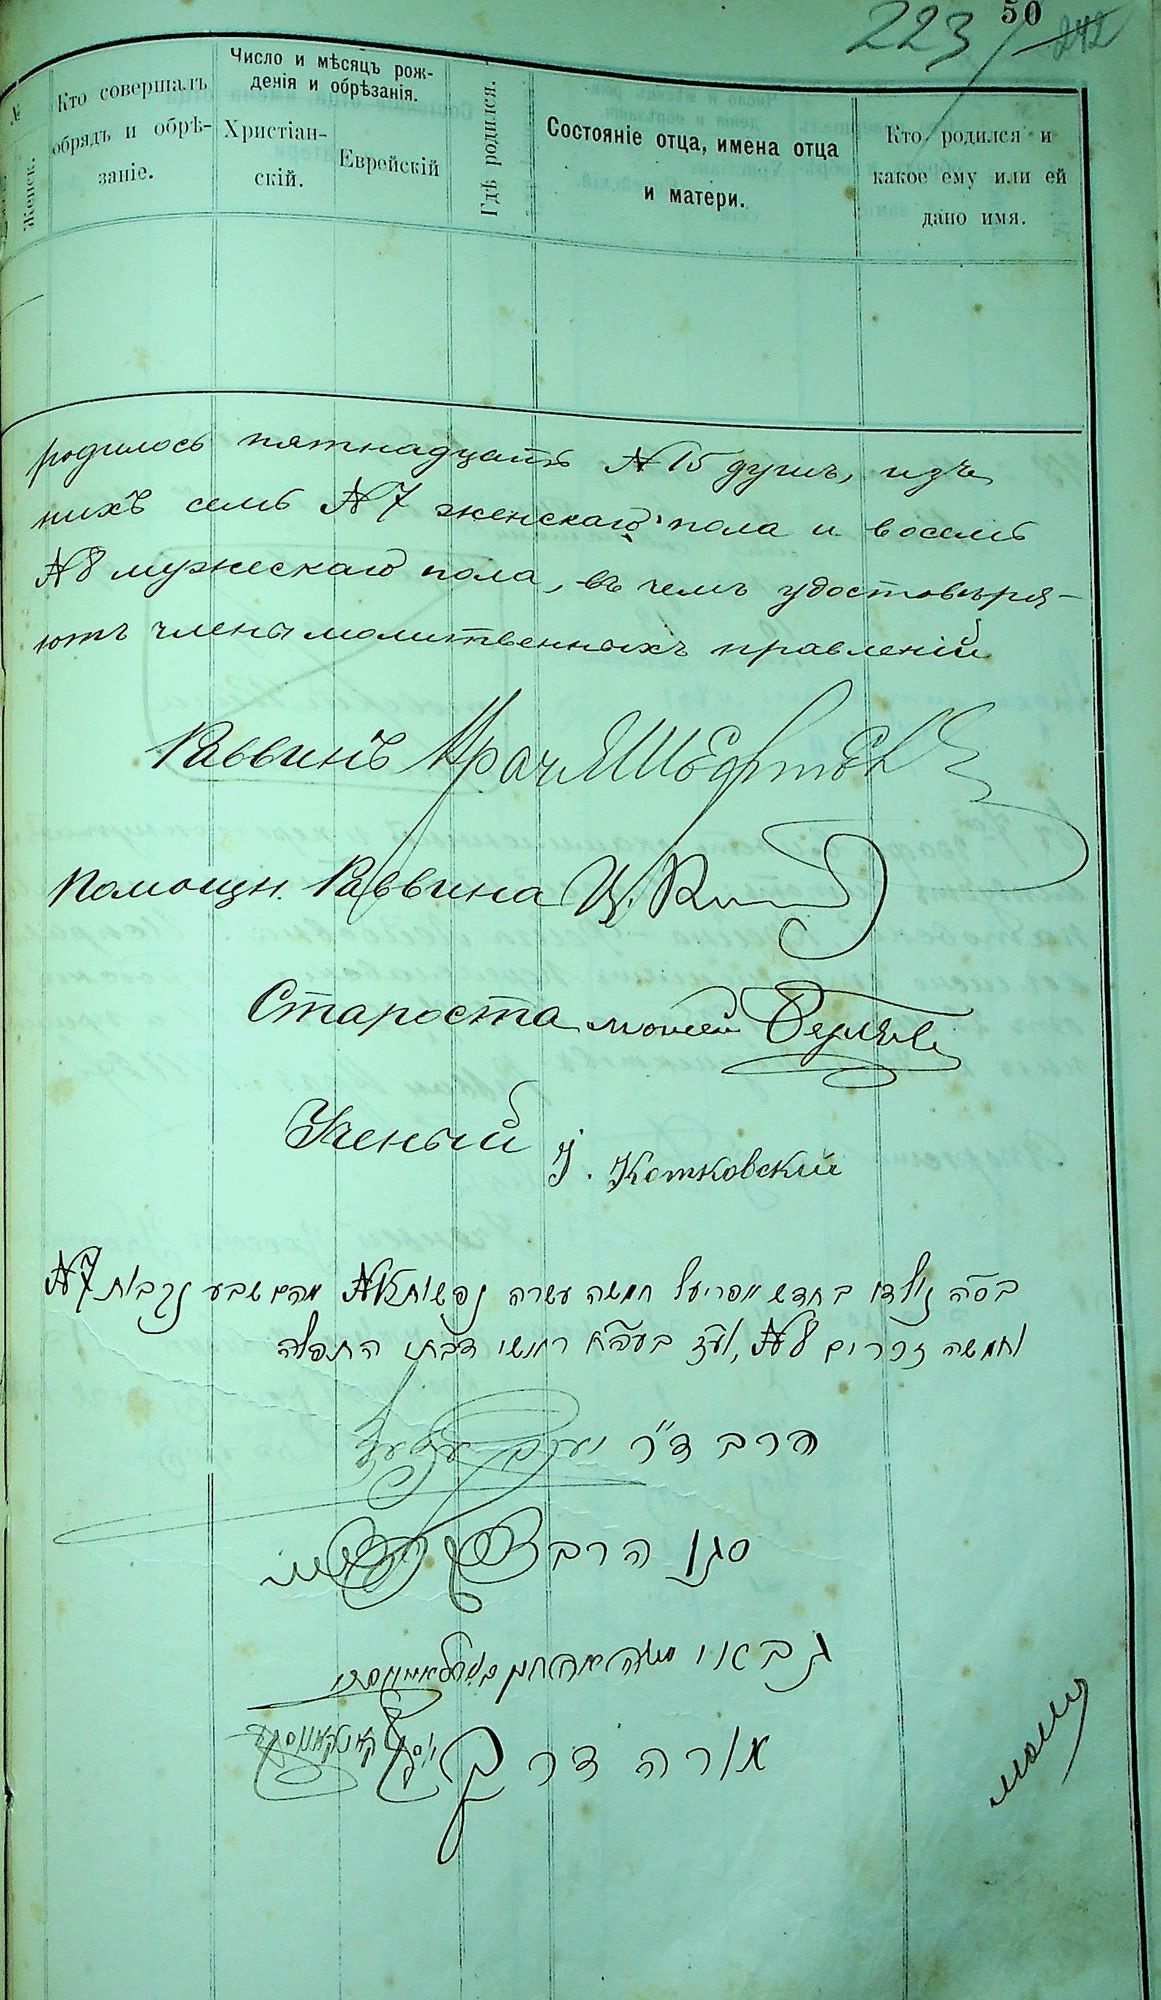 50
223
242
№
Женск.
Кто совершалъ
обрядъ и обрѣ-
заніе.
Число и мѣсяцъ рож-
денія и обрѣзанія.
Христіан-
скій.
Еврейскій
Гдѣ родился.
Состояніе отца, имена отца
и матери.
Кто родился и
какое ему или ей
дано имя.
родилось пятнадцать №15 душъ, изъ
нихъ семь №7 женскаго пола и восемь
№8 мужескаго пола, въ чемъ удостовѣря-
ютъ члены молитвенныхъ правленій
Раввинъ Врач
Помощн. Раввина Ц.
Староста
Ученый І. Котковскій
בס״ה נולדו בחדש אפריעל חמשה עשרה נפשות №15 מהם שבע נקבות №7
זכרים №8, בעה״ח ראשי דבתי התפלה
הרב ד״ר יעקב
סגן הרב
גבאי משה
מורה דרך יוסף